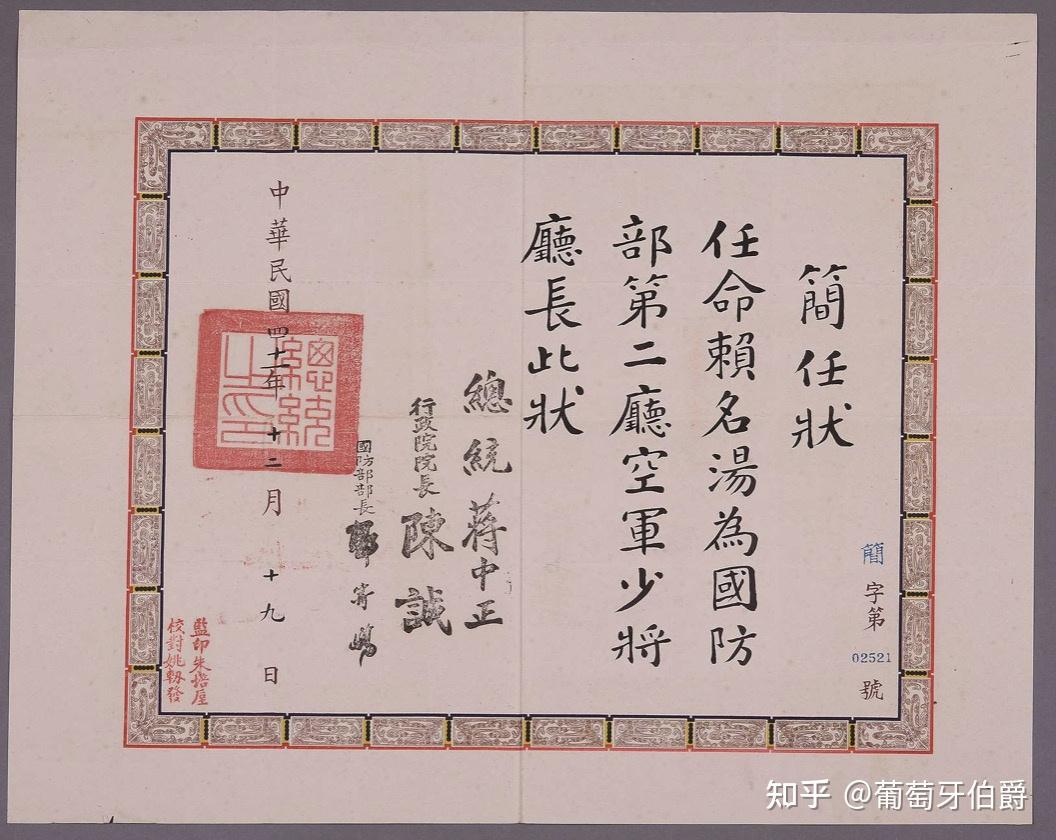 簡任狀
任命賴名湯為國防
部第二廳空軍少將
廳長此狀
總統蔣中正
行政院院長陳誠
國防部部長郭寄嶠
中華民國四十一年十二月十九日
總統之印
簡字第02521號
監印朱
校對姚
知乎 @葡萄牙伯爵